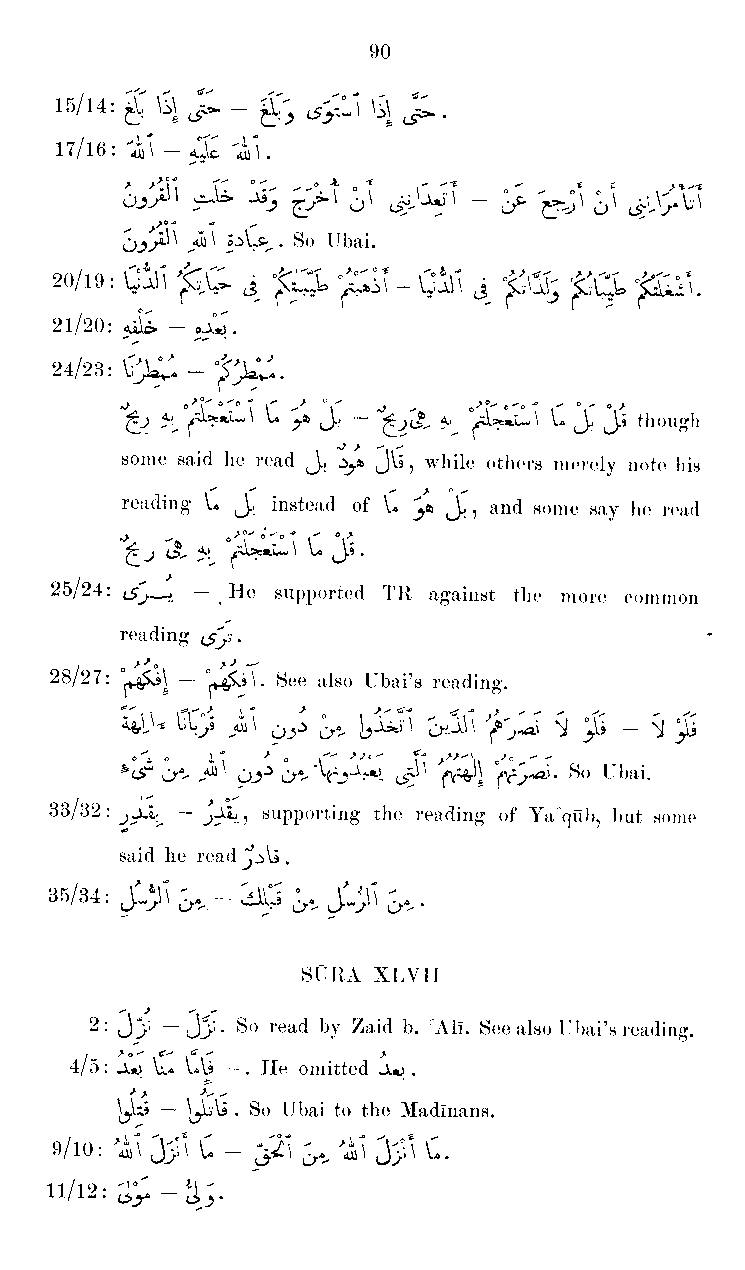 90
15/14: حَتَّى إِذَا بَلَغَ — حَتَّى إِذَا ٱسْتَوَى وَبَلَغَ.
17/16: ٱللّٰهَ — ٱللّٰهَ عَلَيْهِ.
أَتَعِدَانِنِى أَنْ أُخْرَجَ وَقَدْ خَلَتِ ٱلْقُرُونُ — أَتَأْمُرَانِنِى أَنْ أَرْجِعَ عَنْ
عِبَادَةِ ٱللّٰهِ ٱلْقُرُونَ. So Ubai.
20/19: أَذْهَبْتُمْ طَيِّبَتِكُمْ فِى حَيَاتِكُمُ ٱلدُّنْيَا — أَشْغَلَتْكُمْ طَيِّبَاتُكُمْ وَلَذَّاتُكُمْ فِى ٱلدُّنْيَا.
21/20: خَلْفِهِ — بَعْدِهِ.
24/23: مُمْطِرُنَا — مُمْطِرُكُمْ.
بَلْ هُوَ مَا ٱسْتَعْجَلْتُمْ بِهِ رِيحٌ — قُلْ بَلْ مَا ٱسْتَعْجَلْتُمْ بِهِ هِىَ رِيحٌ though
some said he read قَالَ هُودٌ بل, while others merely note his
reading بَلْ مَا instead of بَلْ هُوَ مَا, and some say he read
قُلْ مَا ٱسْتَعْجَلْتُمْ بِهِ هِىَ رِيحٌ.
25/24: يُــرَى — He supported TR against the more common
reading تَرَى.
28/27: إِفْكُهُمْ — آفِكُهُمْ. See also Ubai's reading.
فَلَوْ لَا نَصَرَهُمُ ٱلَّذِينَ ٱتَّخَذُوا مِنْ دُونِ ٱللّٰهِ قُرْبَانًا ءَالِهَةً — فَلَوْ لَا
نَصَرَتْهُمْ إِلٰهَتُهُمُ ٱلَّتِى يَعْبُدُونَهَا مِنْ دُونِ ٱللّٰهِ مِنْ شَىْءٍ. So Ubai.
33/32: بِقَدِرٍ — يَقْدِرُ, supporting the reading of Ya'qūb, but some
said he read قَادِرٌ.
35/34: مِنَ ٱلرُّسُلِ — مِنَ ٱلرُّسُلِ مِنْ قَبْلِكَ.
SŪRA XLVII
2: نُزِّلَ — نَزَّلَ. So read by Zaid b. 'Alī. See also Ubai's reading.
4/5: فَإِمَّا مَنًّا بَعْدُ —. He omitted بَعْدُ.
قُتِلُوا — قَاتَلُوا. So Ubai to the Madīnans.
9/10: مَا أَنْزَلَ ٱللّٰهُ — مَا أَنْزَلَ ٱللّٰهُ مِنَ ٱلْحَقِّ.
11/12: مَوْلَى — وَلِىُّ.